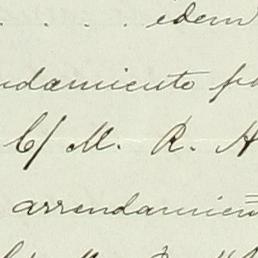 . . . . idem
ndamiento p
C/ M. R. A
arrendamien